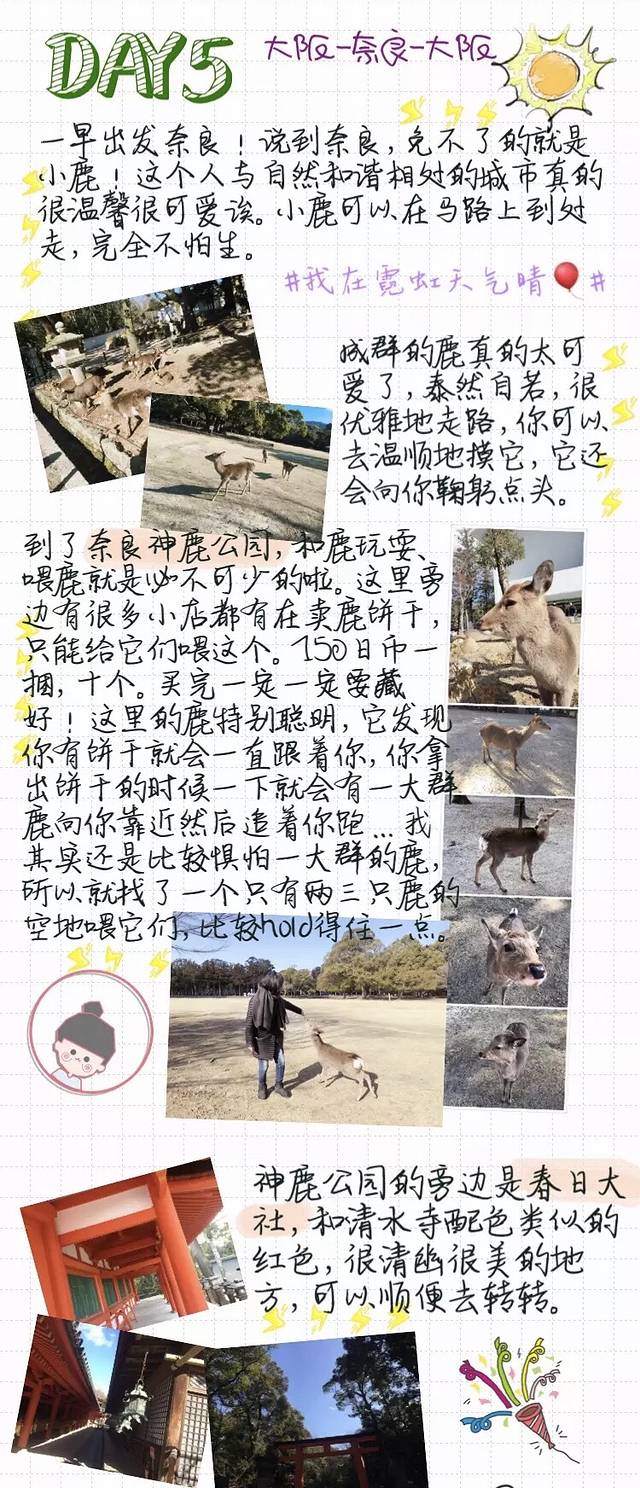 DAY5
大阪-奈良-大阪
一早出发奈良！说到奈良，免不了的就是
小鹿！这个人与自然和谐相处的城市真的
很温馨很可爱诶。小鹿可以在马路上到处
走，完全不怕生。
#我在霓虹天气晴🎈#
成群的鹿真的太可
爱了，泰然自若，很
优雅地走路，你可以
去温顺地摸它，它还
会向你鞠躬点头。
到了奈良神鹿公园，和鹿玩耍、
喂鹿就是必不可少的啦。这里旁
边有很多小店都有在卖鹿饼干，
只能给它们喂这个。150日币一
捆，十个。买完一定一定要藏
好！这里的鹿特别聪明，它发现
你有饼干就会一直跟着你，你拿
出饼干的时候一下就会有一大群
鹿向你靠近然后追着你跑...我
其实还是比较惧怕一大群的鹿，
所以就找了一个只有两三只鹿的
空地喂它们，比较hold得住一点。
神鹿公园的旁边是春日大
社，和清水寺配色类似的
红色，很清幽很美的地
方，可以顺便去转转。